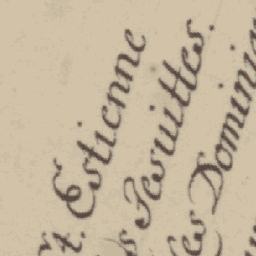 t. Estienne
s Jesuittes.
es Domini